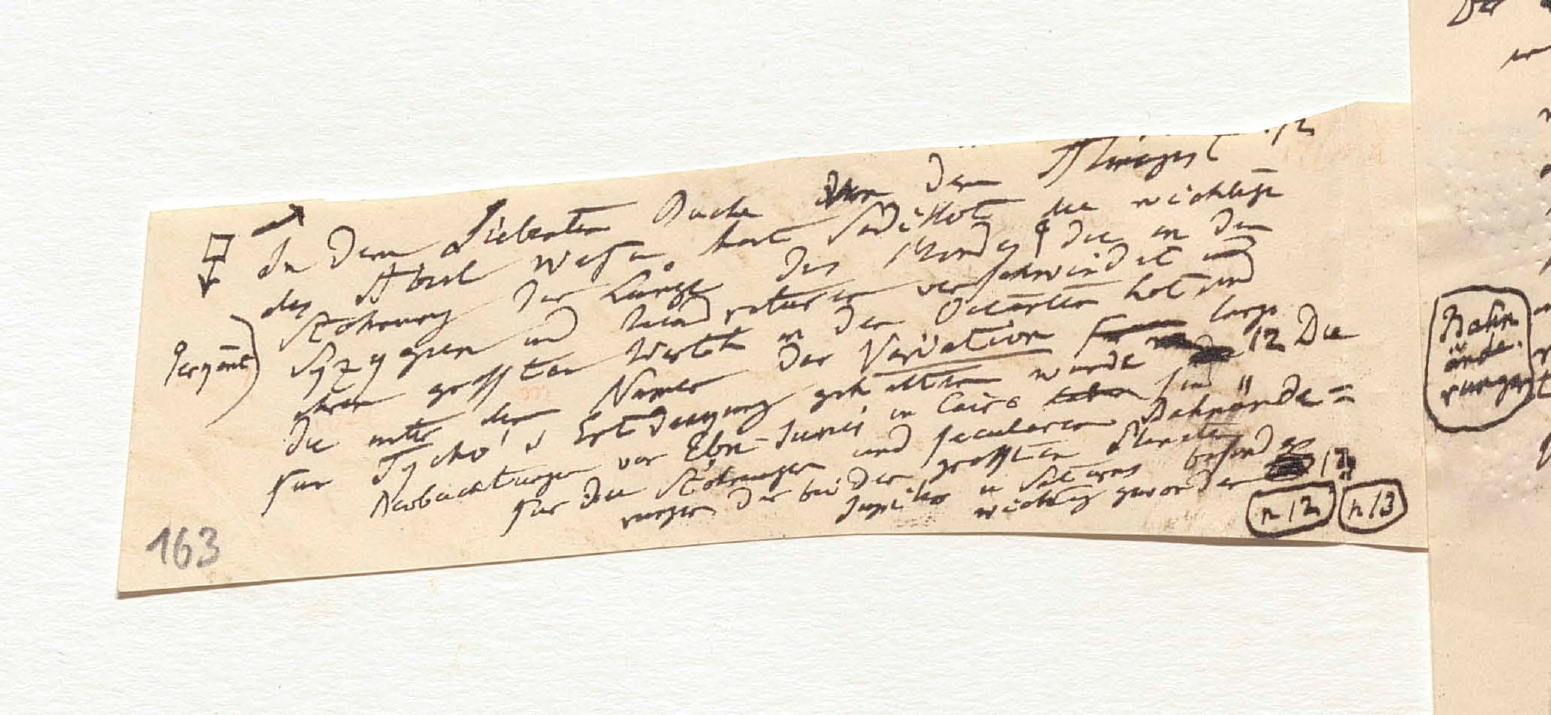 In dem Siebenten Buche von dem Almagest
des Abul Wefa, hat Sédillot die wichtige
Störung der Länge des Mondes, die in den
Syzygien und Quadraturen verschwindet und
ihren größten Werth in den Octanten hat und
die unter dem Namen der Variation lange
für Tycho's Entdeckung gehalten wurde 12 Die
Beobachtungen von Ebn-Junis in Cairo sind
für die Störungen und secularen Bahnände=
rungen der beiden größten Planeten
Jupiter u Saturns besonders
wichtig geworden 13
n 12 n 13
163
Bahn
ände.
rungen